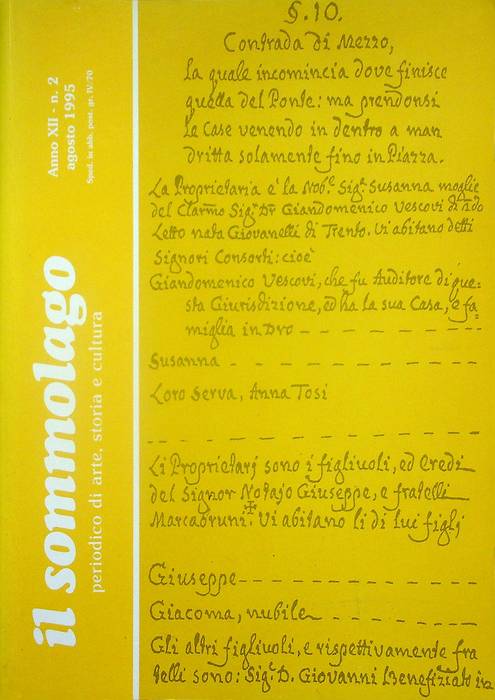 il sommolago
periodico di arte, storia e cultura
Anno XII - n. 2
agosto 1995
Sped. in abb. post. gr. IV/70
§. 10.
Contrada di Mezzo,
la quale incomincia dove finisce
quella del Ponte: ma prendonsi
le Case venendo in dentro a man
dritta solamente fino in Piazza.
La Proprietaria è la Nob.e Sig.a Susanna moglie
del Clarmo Sig.r Dr Giandomenico Vescovi di
Letto nata Giovanelli di Trento. Vi abitano detti
Signori Consorti: cioè
Giandomenico Vescovi, che fu Auditore di que=
sta Giurisdizione, ed ha la sua Casa, e fa=
miglia in Dro
Susanna
Loro Serva, Anna Tosi
Li Proprietarj sono i figliuoli, ed Eredi
del Signor Notajo Giuseppe, e fratelli
Marcabruni. Vi abitano li di lui figlj
Giuseppe
Giacoma, nubile
Gli altri figliuoli, e rispettivamente fra
telli sono: Sig.r D. Giovanni Benefiziato in